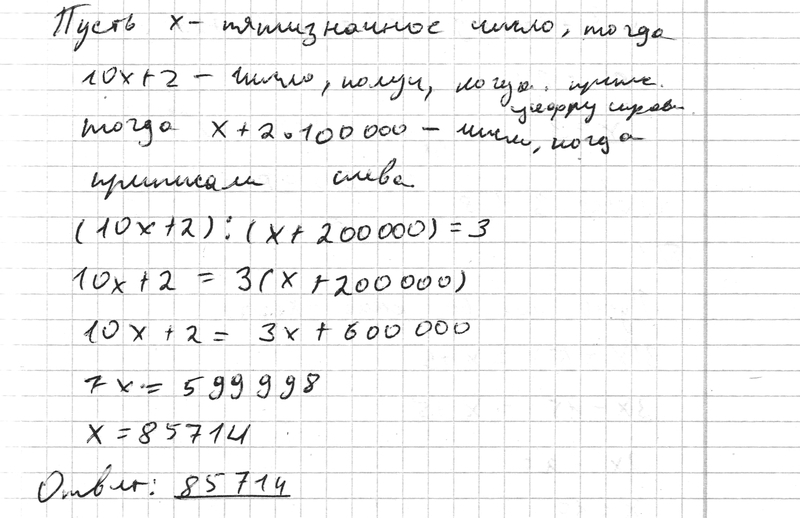 Пусть x - пятизначное число, тогда
10x+2 - число, получ, когда припис.
цифру справ
тогда x+2•100000 - число, когда
приписали слева
(10x+2):(x+200000)=3
10x+2 = 3(x+200000)
10x+2 = 3x+600000
7x = 599998
x=85714
Ответ: 85714